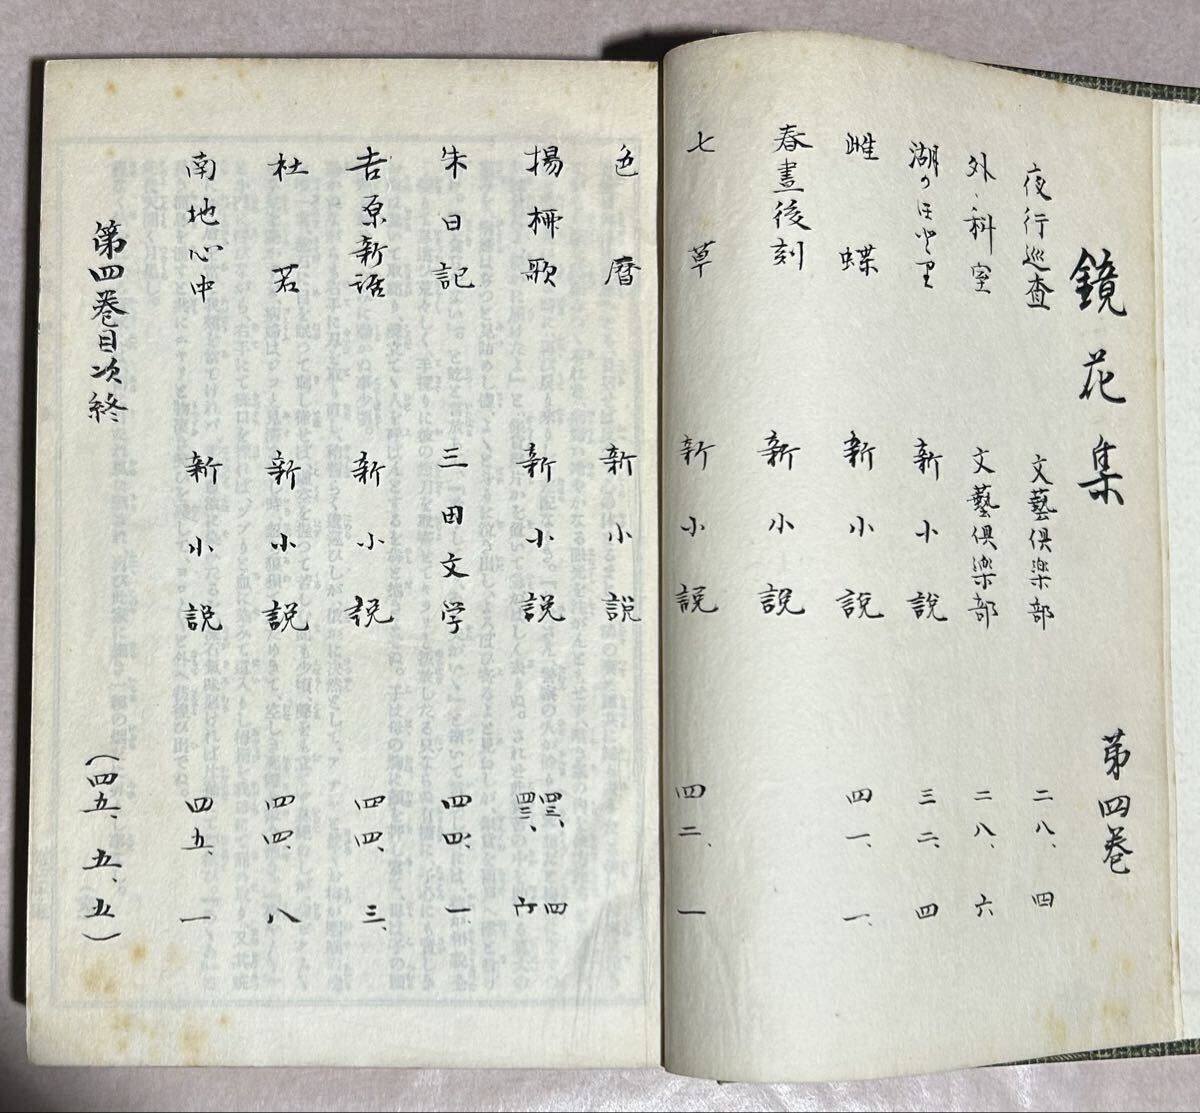 鏡花集 第四巻
夜行巡査 文藝倶楽部 二八、四
外科室 文藝倶楽部 二八、六
湖のほとり 新小説 三二、四
雌蝶 新小説 四一、一、
春晝後刻 新小説
七草 新小説 四二、一
色暦 新小説
楊柳歌 新小説 四三、四 四三、六
朱日記 三田文学 四四、一、
吉原新話 新小説 四四、三、
杜若 新小説 四四、八
南地心中 新小説 四五、一
第四巻目次終 (四五、五、五)